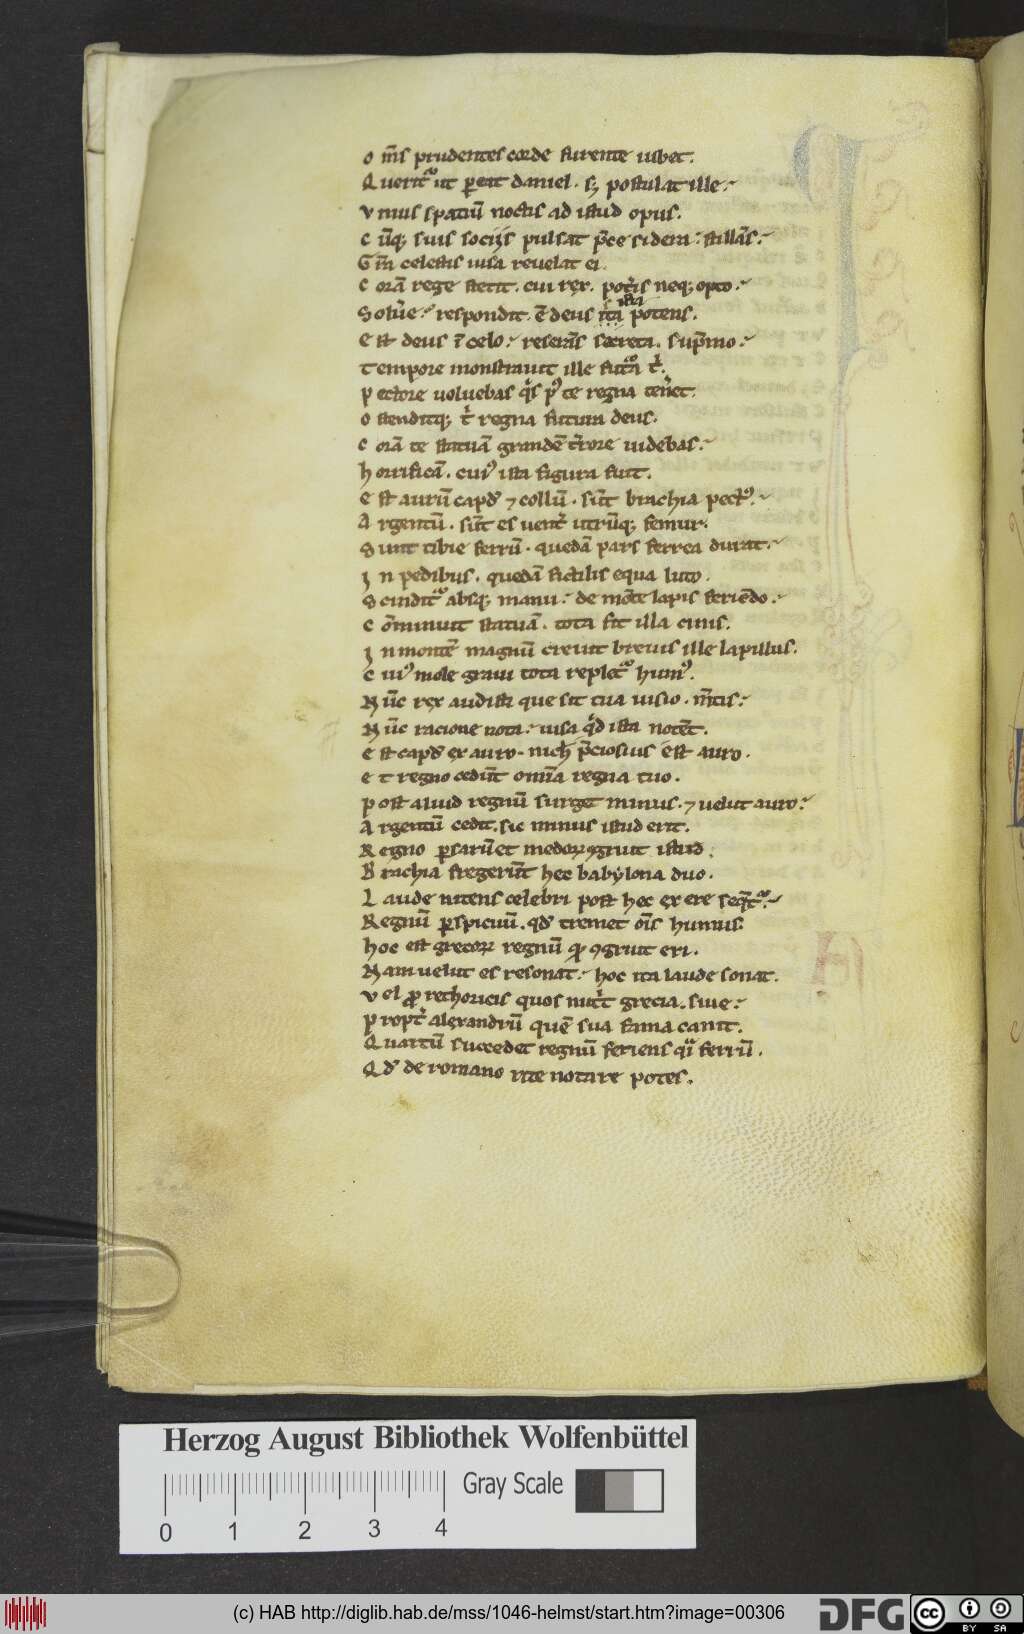 O m̅s prudentes corde furente iubet.
Querit᷑ ut ꝑeat daniel. sꝫ postulat ille.
Vnius spatiū noctis ad istud opus.
Cūqꝫ suis socijs pulsat p̅ce sidera. stillās.
Gr̅a celestis uisa reuelat ei.
Corā rege stetit. cui rex. pot̓is neqꝫ opto.
Solu̓e. respondit. ē deus ita ista potens.
Est deus ī celo. reserās secreta. sup̅mo.
Tempore monstrauit ille futura t̓.
Pectore uoluebas q̓s pꝰ te regna ten̓et.
Ostenditqꝫ t̓ regna futura deus.
Corā te statuā grandē t̓rore uidebas.
Horrificā. cuiꝰ ista figura fuit.
Est aurū capđ ⁊ collū. sūt brachia pectꝰ.
Argentū. sūt es uent̓ utrūqꝫ femur.
Sunt tibie ferrū. quedā pars ferrea durat.
In pedibus. quedā fictilis equa luto.
Scindit᷑ absqꝫ manu. de mōte lapis feriēdo.
Cōminuit statuā. tota fit illa cinis.
In montē magnū creuit breuis ille lapillus.
Cuiꝰ mole graui tota replet᷑ humꝰ.
Nūc rex audisti que sit tua uisio. m̅tis.
Nūc racione nota. uisa q̓d ista notēt.
Est capđ ex auro. nich̓ p̅ciosius est auro.
Et regno cedūt omīa regna tuo.
Post aliud regnū surget minus. ⁊ uelut auro.
Argentū cedit. sic minus istud erit.
Regno ꝑsarū et medoꝝ ꝯgruit istud.
Brachia fregerūt hec babylona duo.
Laude nitens celebri post hec ex ere seq̅t᷑.
Regnū ꝑspicuū. qđ tremet oīs humus.
Hoc est grecoꝝ regnū ꝙ ꝯgruit eri.
Nam uelut es resonat. hoc ita laude sonat.
Vel ꝓ rethoricis quos nut̓t grecia. siue.
Propt̓ alexandrū quē sua fama canit.
Quartū succedet regnū feriens q̓i ferrū.
Qđ de romano rite notare potes.
Herzog August Bibliothek Wolfenbüttel
Gray Scale
0 1 2 3 4
(c) HAB http://diglib.hab.de/mss/1046-helmst/start.htm?image=00306
DFG
cc BY SA